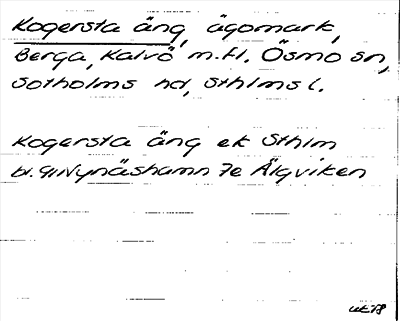 Kogersta äng, ägomark,
Berga, Kalvö m.fl. Ösmo sn,
Sotholms hd, Sthlms l.
Kogersta äng ek Sthlm
bl. 91 Nynäshamn 7e Älgviken